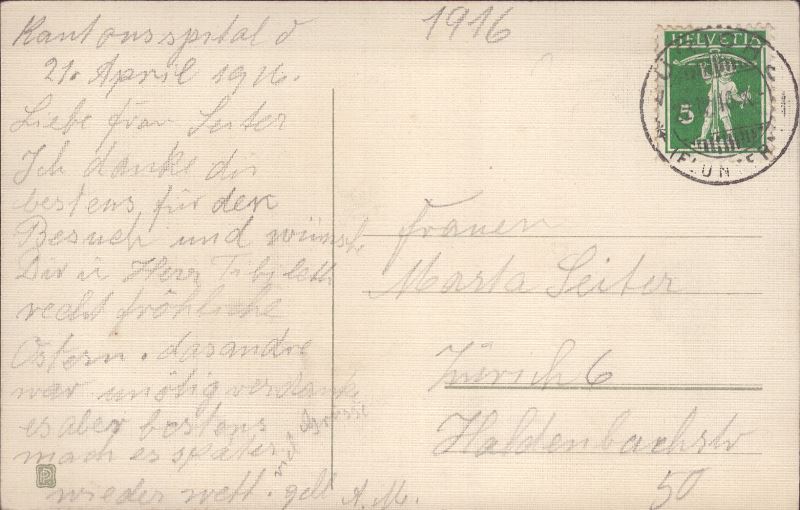 1916
Kantonsspital
21. April 1916.
Liebe Frau Seiter
Ich danke dir
bestens für den
Besuch und wünsch
Dir u Herr
recht fröhliche
Ostern. das andre
war unötig verdank
es aber bestens
mach es später
wieder wett. gell
viel Grüsse
A. M.
HELVETIA
5
Frauen
Marta Seiter
Zürich 6
Haldenbachstr
50